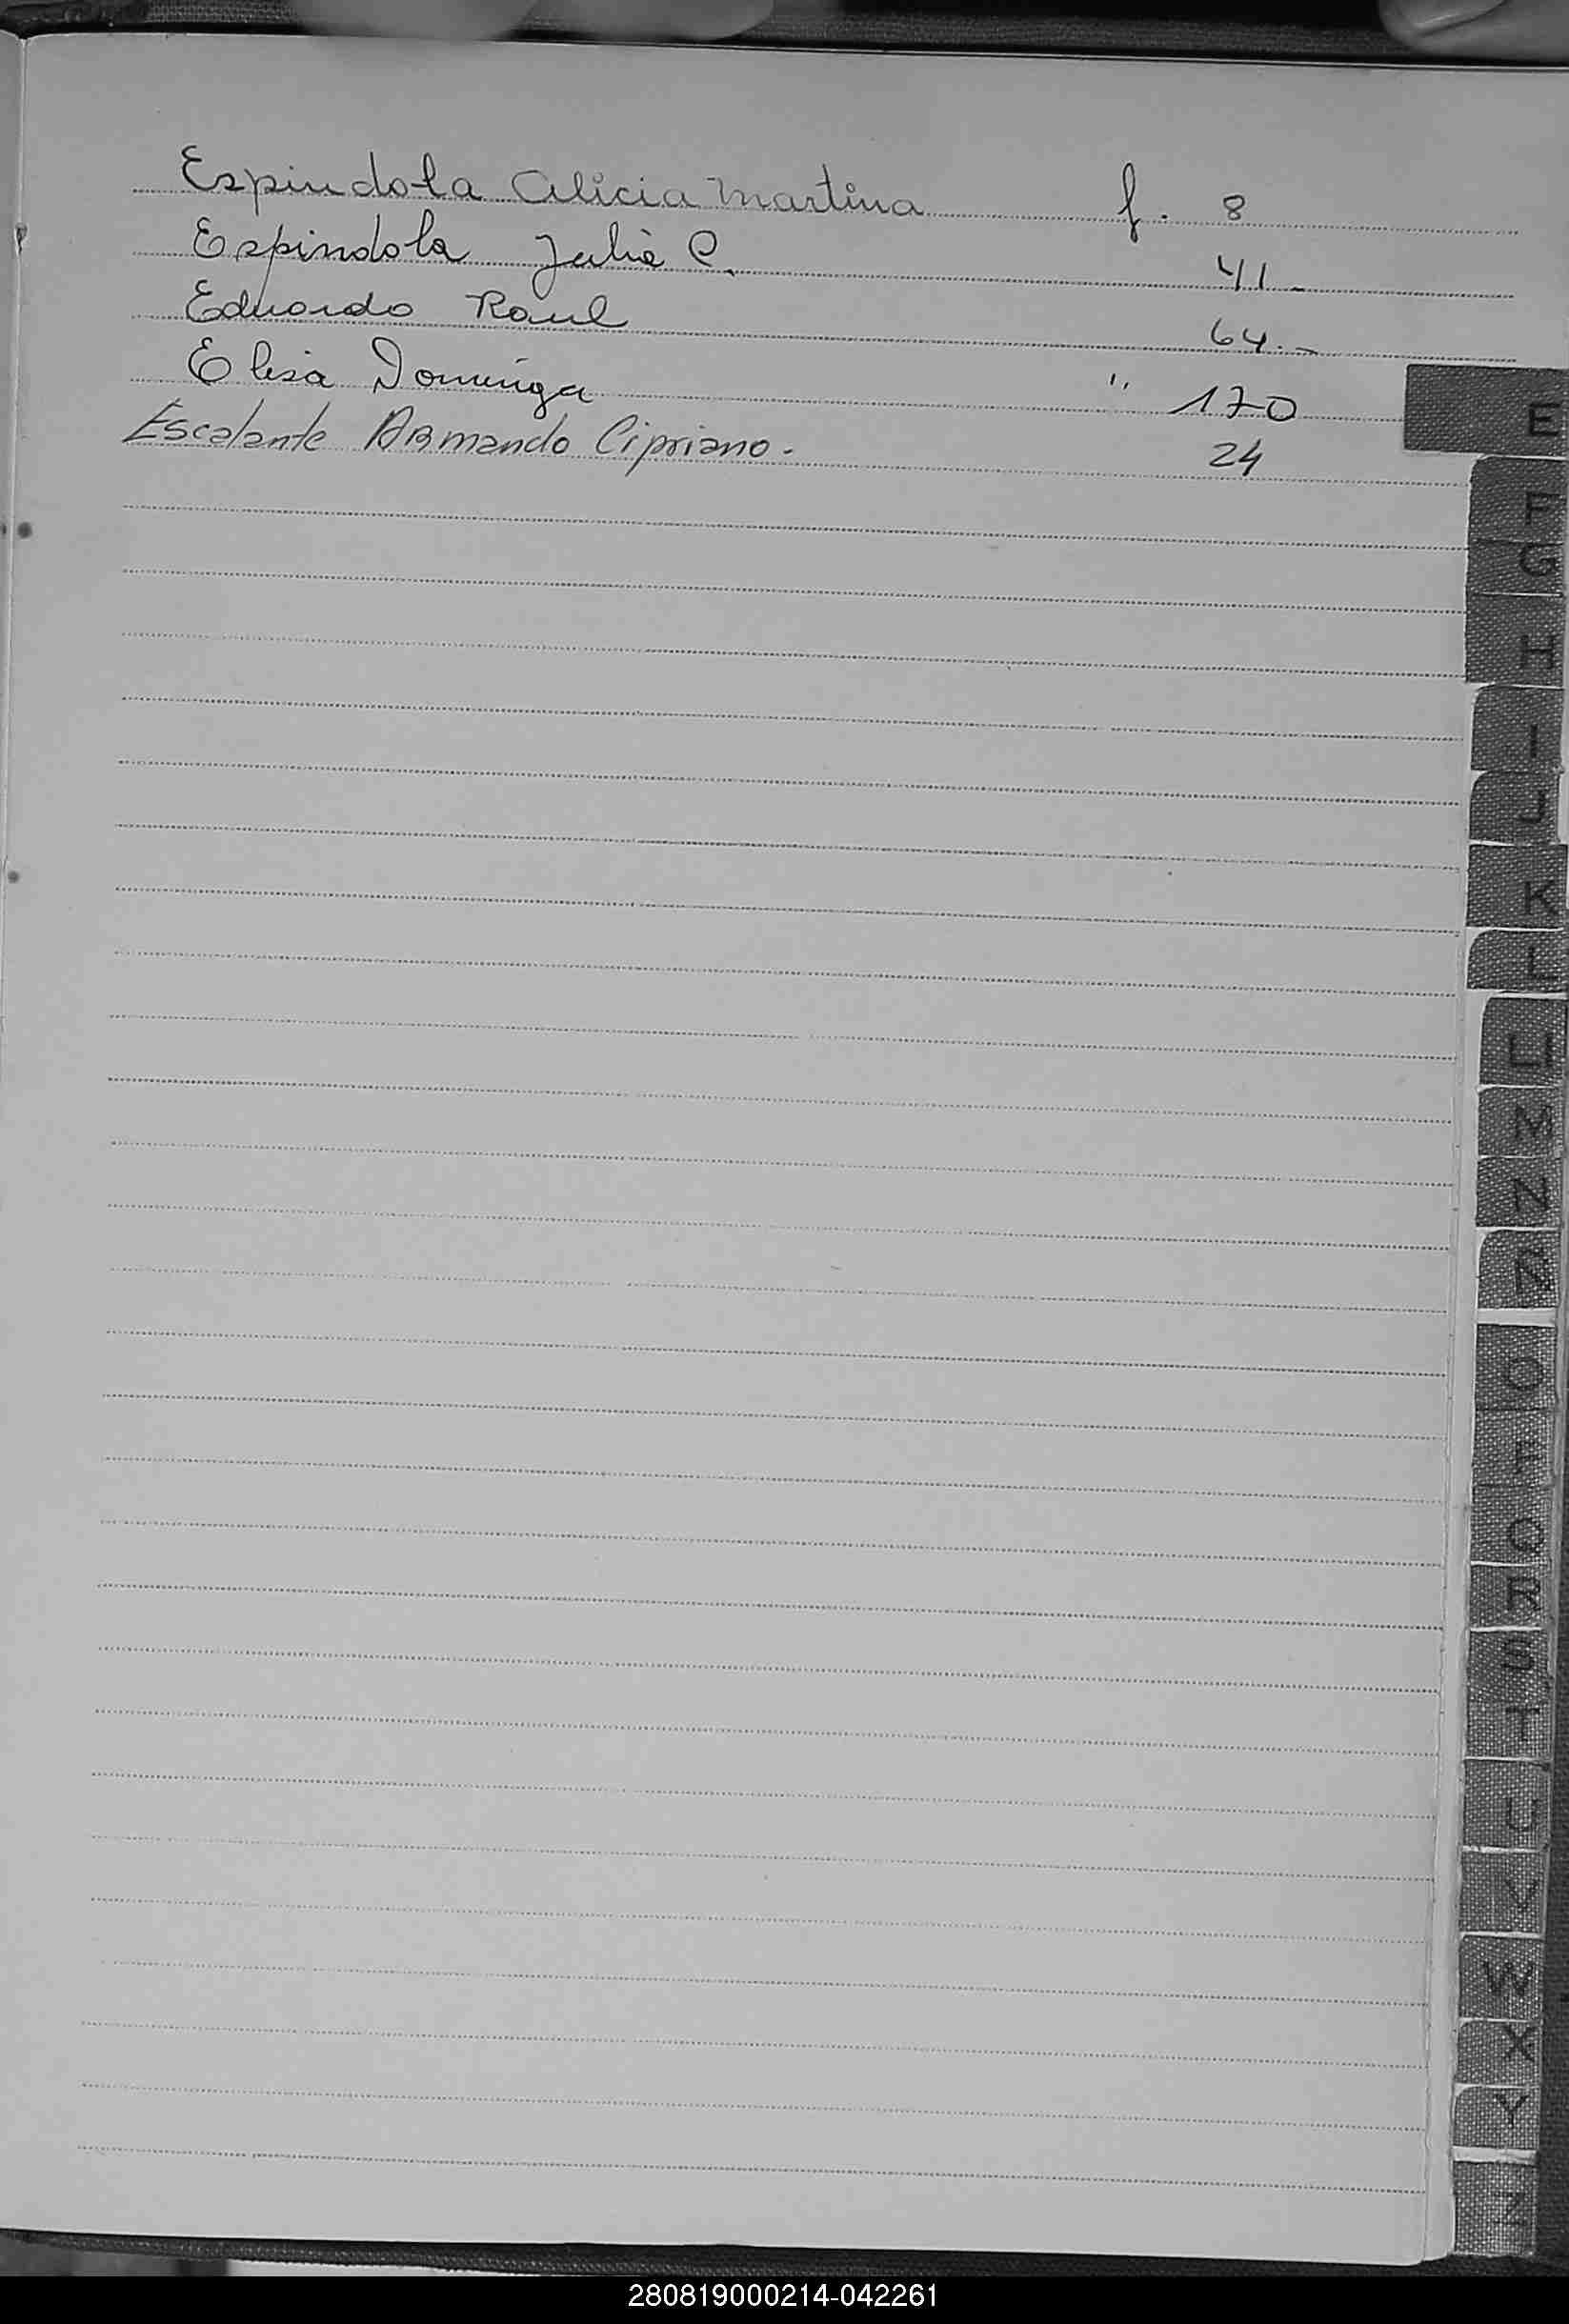 Espindola Alicia Martina f. 8
Espindola Julia C. 41-
Eduardo Raul 64.-
Elisa Dominga " 170
Escalante Armando Cipriano. 24
E
F
G
H
I
J
K
L
LL
M
N
Ñ
O
P
Q
R
S
T
U
V
W
X
Y
Z
280819000214-042261